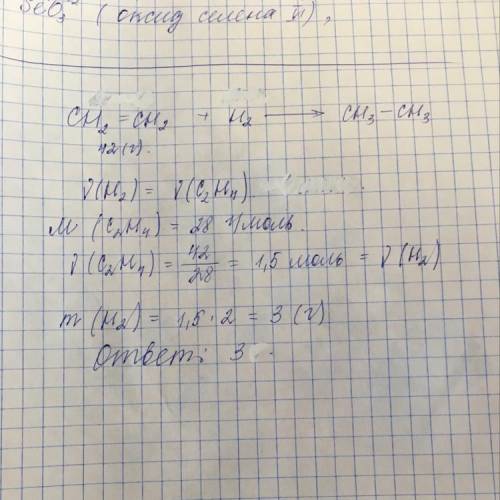 SeO₃ (оксид селена VI),
CH₂ = CH₂ + H₂ ⟶ CH₃ – CH₃
42 (г).
ν(H₂) = ν(C₂H₄)
M (C₂H₄) = 28 г/моль.
ν(C₂H₄) = 42/28 = 1,5 моль = ν(H₂)
m (H₂) = 1,5 · 2 = 3 (г)
Ответ: 3